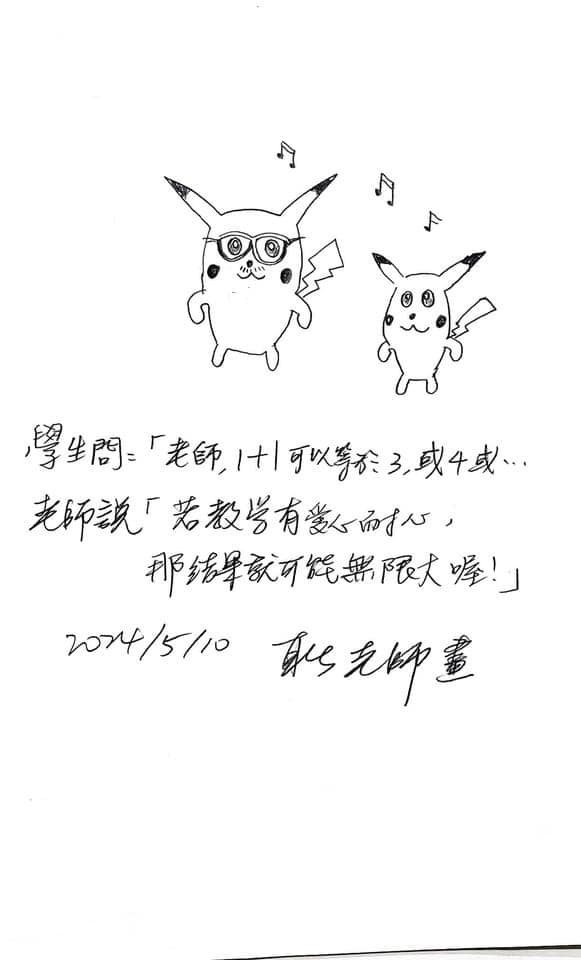 學生問:「老師,1+1可以等於3,或4或…
老師說「若教学有愛心耐心,
那結果就可能無限大喔!」
2024/5/10 老師畫